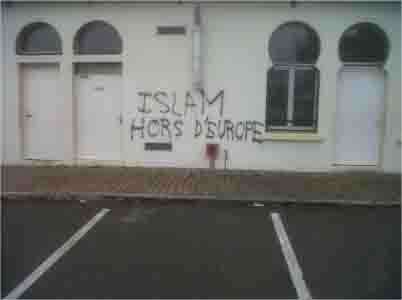 ISLAM
HORS D'EUROPE